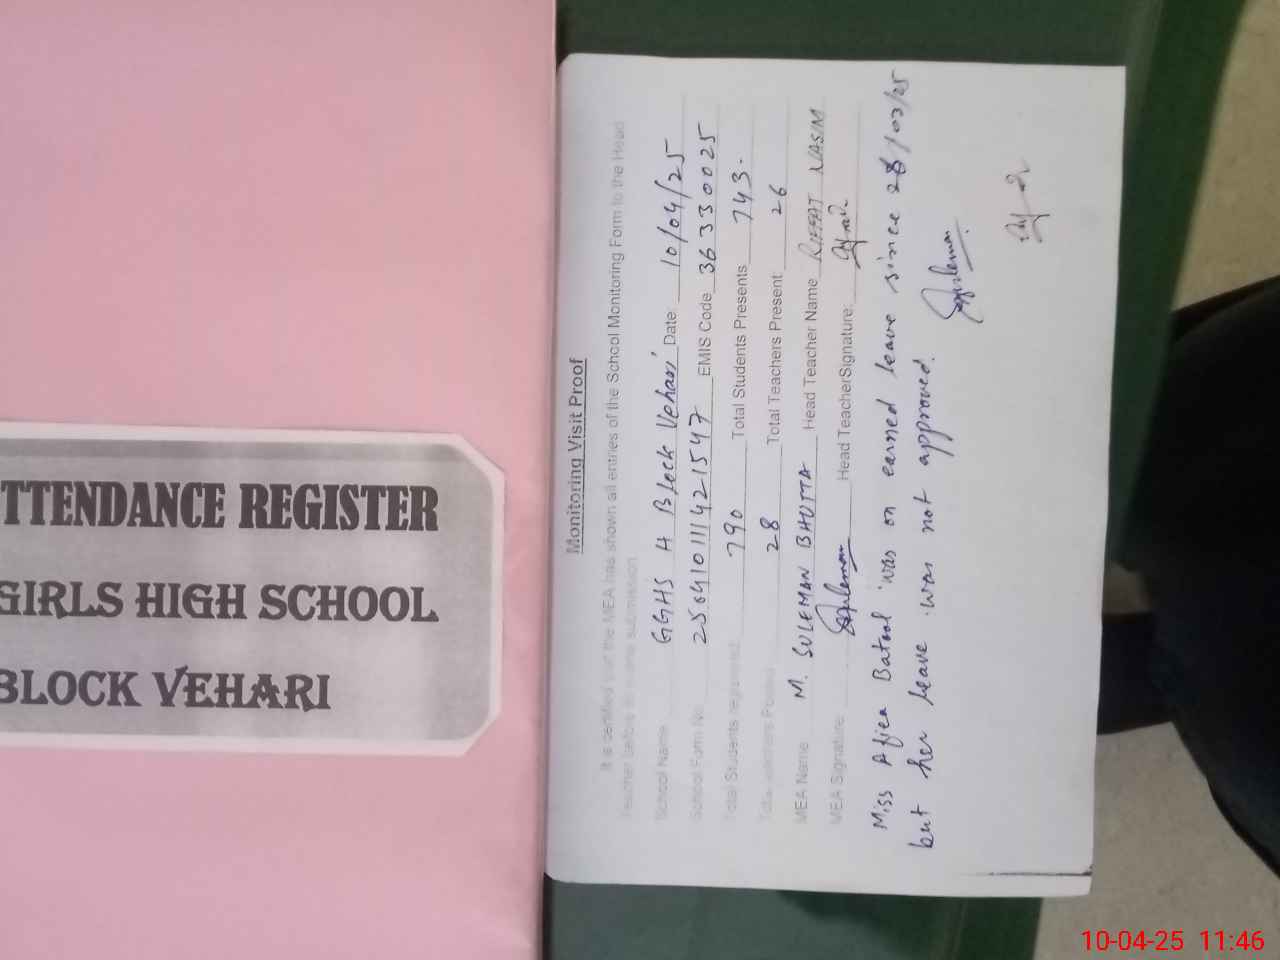 TTENDANCE REGISTER
GIRLS HIGH SCHOOL
BLOCK VEHARI
Monitoring Visit Proof
It is certified that the MEA has shown all entries of the School Monitoring Form to the Head
Teacher before online submission
School Name GGHS H Block Vehari Date: 10/04/25
School Form No 250410111421547 EMIS Code 36330025
Total Students registered: 790 Total Students Presents 743.
Total teachers Posted 28 Total Teachers Present 26
MEA Name M. SULEMAN BHUTTA Head Teacher Name RIFFAT NASIM
MEA Signature Head TeacherSignature:
Miss Afiea Batool was on earned leave since /03/25
but her leave was not approved.
10-04-25 11:46